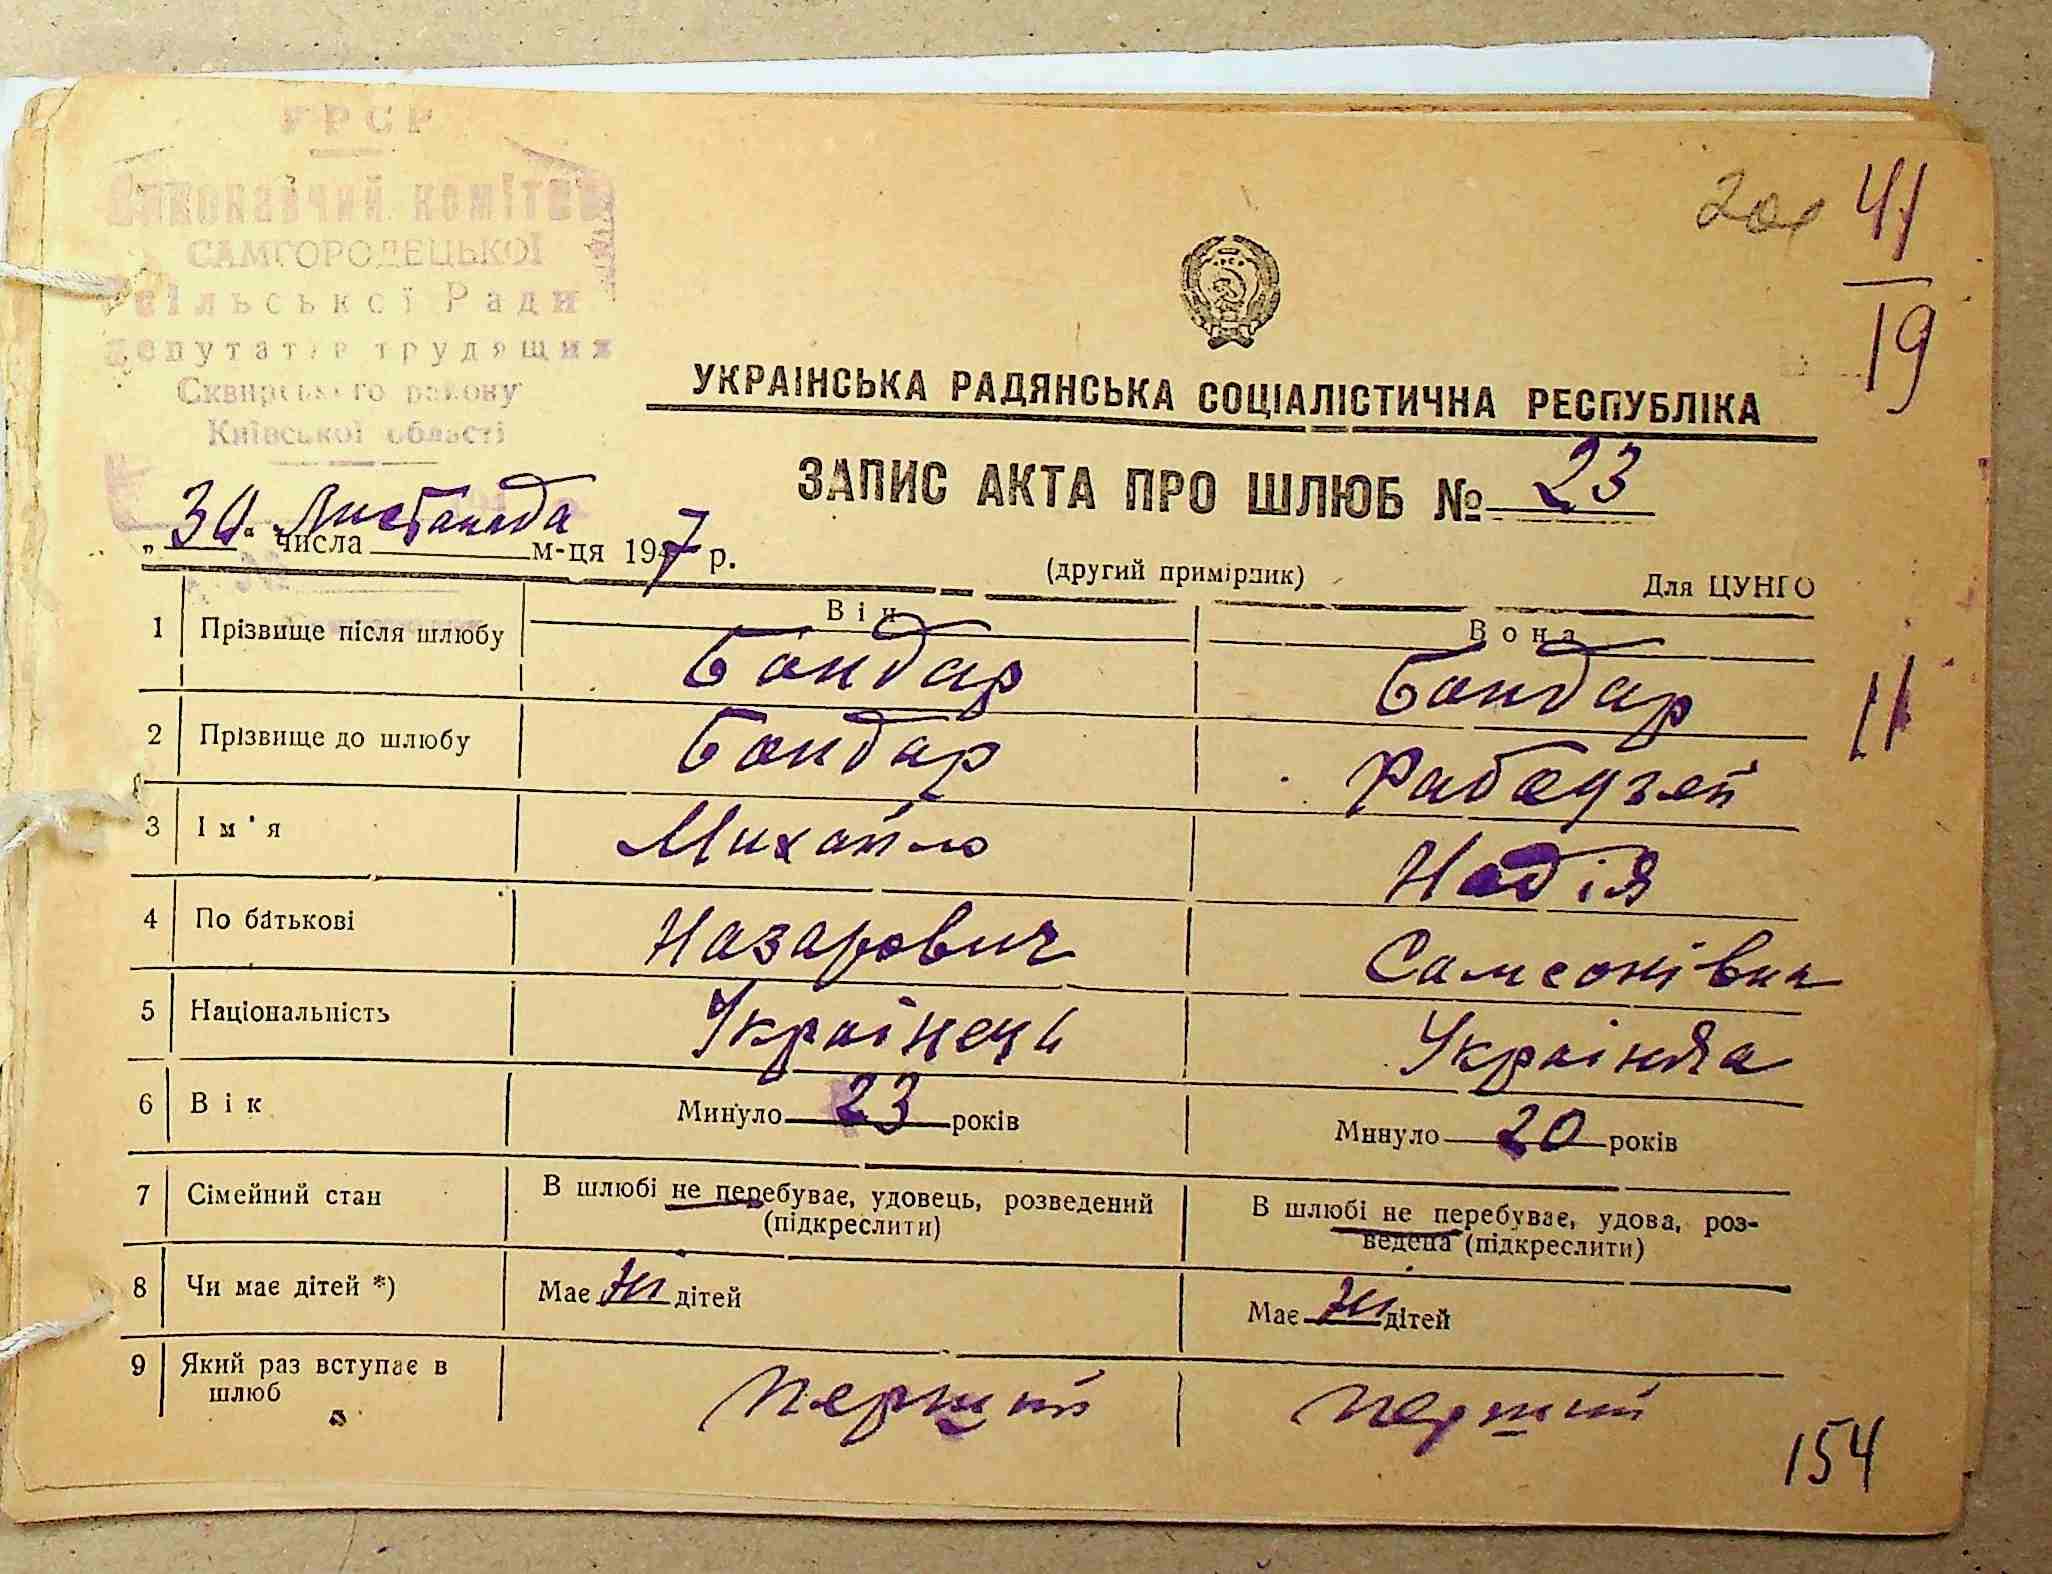 УРСР
Виконавчий комітет
САМГОРОДЕЦЬКОЇ
сільської Ради
депутатів трудящих
Сквирського району
Київської області
41
19
УКРАЇНСЬКА РАДЯНСЬКА СОЦІАЛІСТИЧНА РЕСПУБЛІКА
ЗАПИС АКТА ПРО ШЛЮБ № 23
„30“ числа Листопада м-ця 1947 р.
(другий примірник) Для ЦУНГО
Він Вона
1 Прізвище після шлюбу Бондар Бондар
11
2 Прізвище до шлюбу Бондар
3 Ім'я Михайло Надія
4 По батькові Назарович Самсонівна
5 Національність Українець Українка
6 Вік Минуло 23 років Минуло 20 років
7 Сімейний стан В шлюбі не перебуває, удовець, розведений (підкреслити) В шлюбі не перебуває, удова, роз-
ведена (підкреслити)
8 Чи має дітей *) Має ні дітей Має ні дітей
9 Який раз вступає в шлюб перший перший
154